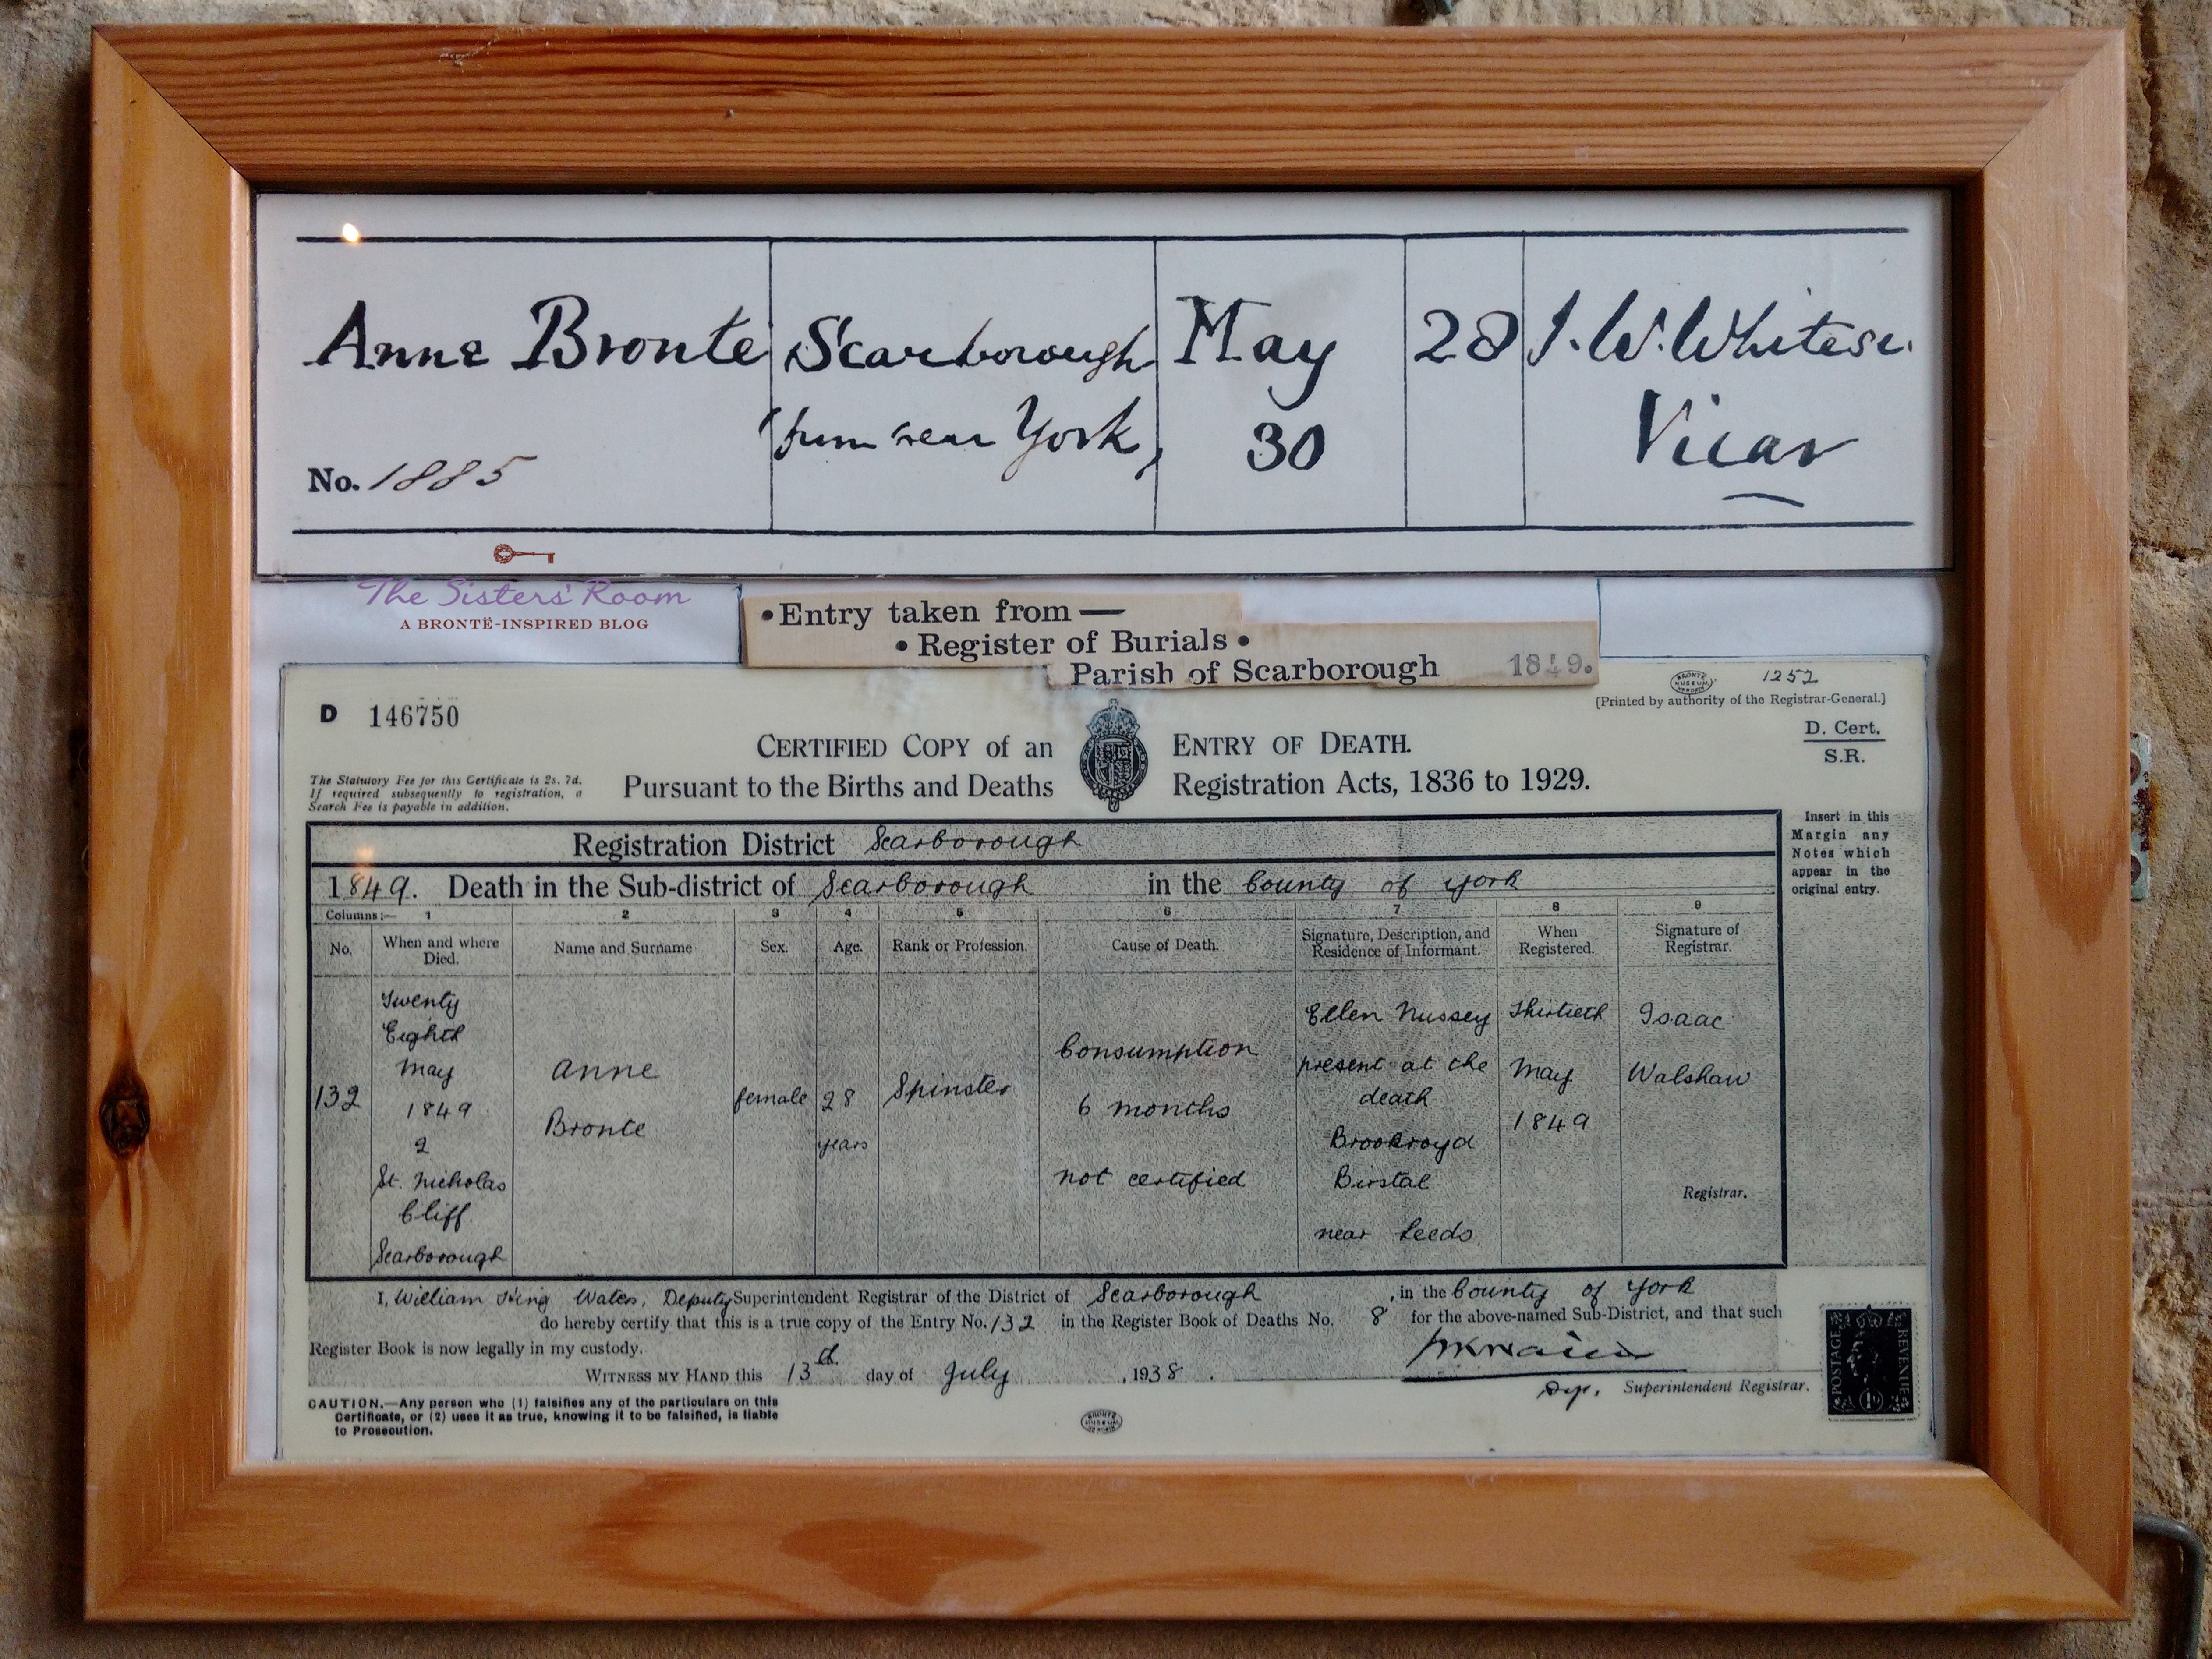 Anne Bronte Scarborough May 28 J.W.Whitesi.
from near York, 30 Vicar
No. 1885
The Sisters' Room
A BRONTË-INSPIRED BLOG
•Entry taken from —
• Register of Burials •
Parish of Scarborough 1849.
BRONTË MUSEUM 1252
[Printed by authority of the Registrar-General.]
D 146750
D. Cert.
S.R.
CERTIFIED COPY of an ENTRY OF DEATH.
Pursuant to the Births and Deaths Registration Acts, 1836 to 1929.
The Statutory Fee for this Certificate is 2s. 7d.
If required subsequently to registration, a
Search Fee is payable in addition.
Insert in this
Margin any
Notes which
appear in the
original entry.
Registration District Scarborough
1849. Death in the Sub-district of Scarborough in the County of York
Columns:— 1 2 3 4 5 6 7 8 9
No.
When and where
Died.
Name and Surname
Sex.
Age.
Rank or Profession.
Cause of Death.
Signature, Description, and
Residence of Informant.
When
Registered.
Signature of
Registrar.
132
Twenty
Eighth
May
1849
2
St. Nicholas
Cliff
Scarborough
Anne
Bronte
female
28
years
Spinster
Consumption
6 months
not certified
Ellen Nussey
present at the
death
Brookroyd
Birstal
near Leeds
Thirtieth
May
1849
Isaac
Walshaw
Registrar.
I, William King Wales, Deputy Superintendent Registrar of the District of Scarborough, in the County of York
do hereby certify that this is a true copy of the Entry No. 132 in the Register Book of Deaths No. 8 for the above-named Sub-District, and that such
Register Book is now legally in my custody.
WITNESS MY HAND this 13th day of July, 1938.
Dep. Superintendent Registrar.
CAUTION.—Any person who (1) falsifies any of the particulars on this
Certificate, or (2) uses it as true, knowing it to be falsified, is liable
to Prosecution.
BRONTË MUSEUM
POSTAGE REVENUE
1D